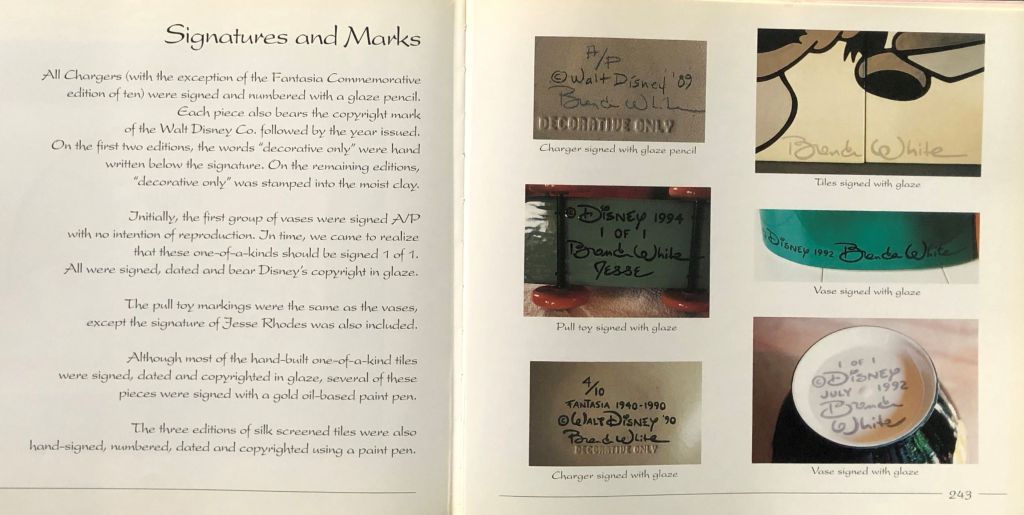 Signatures and Marks
All Chargers (with the exception of the Fantasia Commemorative
edition of ten) were signed and numbered with a glaze pencil.
Each piece also bears the copyright mark
of the Walt Disney Co. followed by the year issued.
On the first two editions, the words "decorative only" were hand
written below the signature. On the remaining editions,
"decorative only" was stamped into the moist clay.
Initially, the first group of vases were signed A/P
with no intention of reproduction. In time, we came to realize
that these one-of-a-kinds should be signed 1 of 1.
All were signed, dated and bear Disney's copyright in glaze.
The pull toy markings were the same as the vases,
except the signature of Jesse Rhodes was also included.
Although most of the hand-built one-of-a-kind tiles
were signed, dated and copyrighted in glaze, several of these
pieces were signed with a gold oil-based paint pen.
The three editions of silk screened tiles were also
hand-signed, numbered, dated and copyrighted using a paint pen.
A/P
© Walt Disney '89
Brenda White
DECORATIVE ONLY
Charger signed with glaze pencil
© DISNEY 1994
1 OF 1
Brenda White
JESSE
Pull toy signed with glaze
4/10
FANTASIA 1940-1990
© WALT DISNEY '90
Brenda White
DECORATIVE ONLY
Charger signed with glaze
Brenda White
Tiles signed with glaze
© DISNEY 1992 Brenda White
Vase signed with glaze
1 OF 1
© DISNEY
JULY 1992
Brenda
White
Vase signed with glaze
243